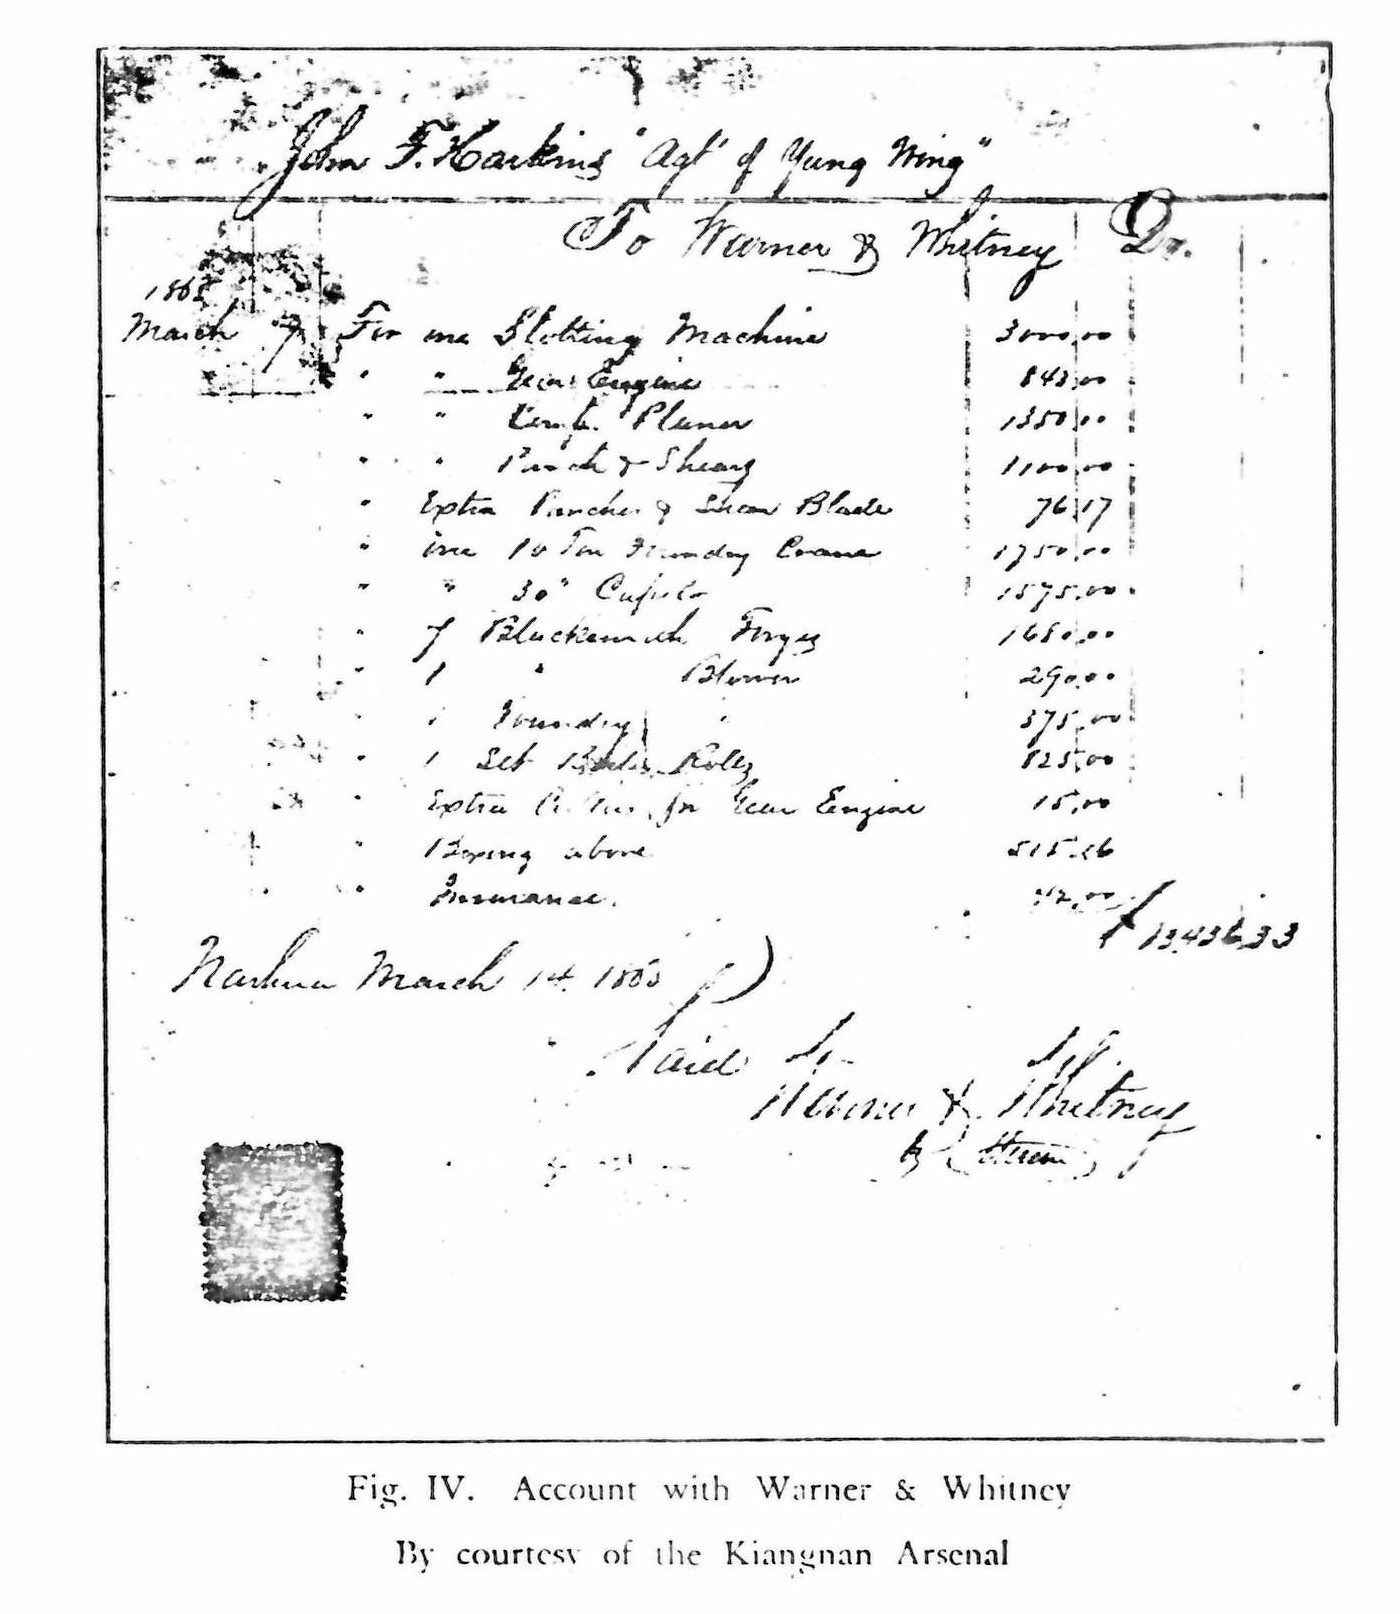 John F. Harkins "Agt" of Yung Wing"
To Warner & Whitney Dr.
1865
March 7 For one Slotting Machine 3000.00
" " Gear Engine 843.00
" " Planer 1350.00
" " Punch & Shears 1100.00
" Extra Punches & Shear Blade 76.17
" one 10 Ton Foundry Crane 1750.00
" " 30" Cupola 1575.00
" 7 Blacksmith Forges 1680.00
" 1 " Blower 290.00
" 1 Foundry " 375.00
" 1 Set Rolls 825.00
" Extra for Gear Engine 15.00
" Boxing above 515.16
" " Insurance. 42.00
$13,436.33
Nashua March 14. 1865
Paid
Warner & Whitney
by
Fig. IV. Account with Warner & Whitney
By courtesy of the Kiangnan Arsenal